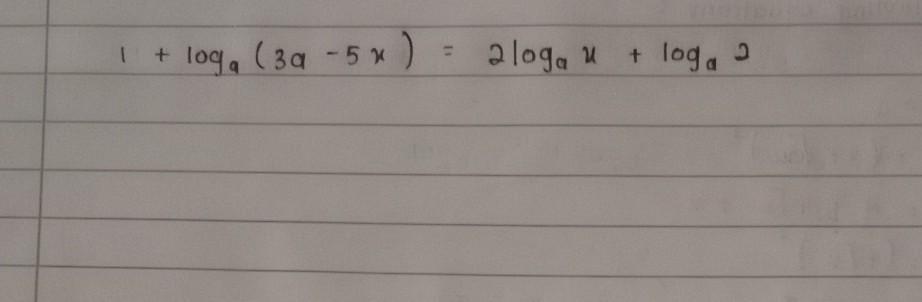 1 + logₐ (3a - 5x) = 2logₐ x + logₐ 2